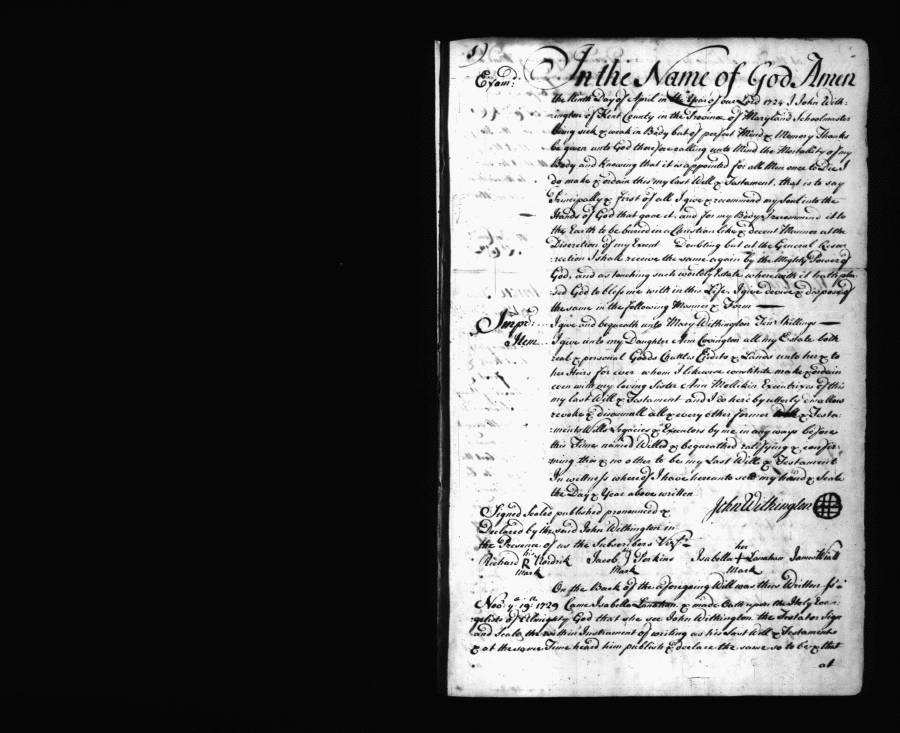 1)
In the Name of God Amen
Exam.d
the Ninth Day of April in the Year of our Lord 1724 I John With=
=ington of Kent County in the Province of Maryland Schoolmaster
being sick & weak in Body but of perfect Mind & Memory Thanks
be given unto God therefore calling unto Mind the Mortality of my
Body and knowing that it is appointed for all Men once to Die I
do make & ordain this my last Will & Testament, that is to say
Principally & first of all I give & recommend my Soul into the
Hands of God that gave it, and for my Body I recommend it to
the Earth to be buried in a Christian like & decent Manner at the
Discretion of my Execut Doubting but at the General Resur
=rection I shall receive the same again by the Mighty Power of
God, and as touching such worldly Estate wherewith it hath plea
sed God to bless me with in this Life, I give devise & dispose of
the same in the following Manner & Form
Impr: I give and bequeath unto Mary Withington Ten Shillings
Item I give unto my Daughter Ann Covington all my Estate both
real & personal Goods Chattles Credits & Lands unto her & to
her Heirs for ever whom I likewise constitute make & ordain
even with my loving Sister Ann Mollekin Executrixes of this
my last Will & Testament and I do hereby utterly disallow
revoke & disannull all & every other former & Testa=
=ments Wills Legacies & Executors by me in any ways before
this Time named Willed & bequeathed ratifying & confir=
ming this & no other to be my Last Will & Testament
In witness whereof I have hereunto set my hand & Seale
the Day & Year above written
John Withington
Signed Sealed published pronounced &
Declared by the said John Withington in
the Presence of us the Subscribers Vizt
his her
Richard R Jacob J Perkins Isabella + Lanahan James Wall
Mark Mark Mark
On the Back of the aforegoing Will was thus Written
Nov.r ye 19th 1729 Came Isabella Lanahan & made Oath upon the Holy Evan=
gelists of Almighty God that she see John Withington the Testator Sign
and Seale the within Instrument of writing as his Last Will & Testament
& at the same Time heard him publish & declare the same so to be & that
at